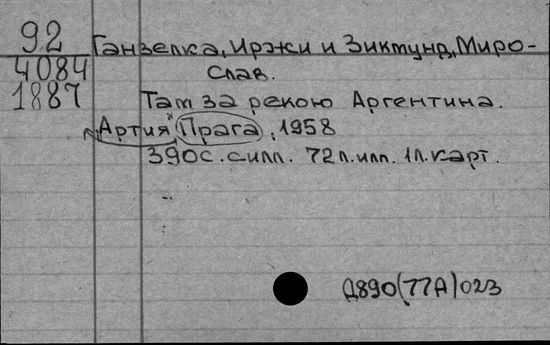 92 Ганзелка, Иржи и Зикмунд, Миро-
4084 слав.
1887 Там за рекою Аргентина.
"Артия" Прага, 1958
390с. с илл. 72 л. илл. 1 л. карт.
Д890(77А)023